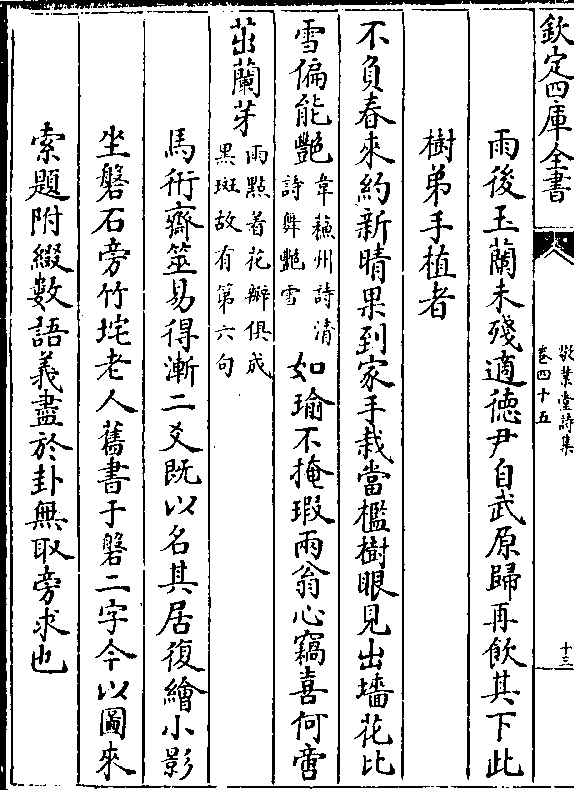 欽定四庫全書
敬業堂詩集
卷四十五
十三
雨後玉蘭未殘適徳尹自武原歸再飲其下此
樹弟手植者
不負春來約新晴果到家手栽當檻樹眼見出墻花比
雪偏能艷韋蘓州詩清詩舞艷雪如瑜不掩瑕兩翁心竊喜何啻
茁蘭芽雨點着花瓣俱成黒斑故有第六句
馬衎齋筮易得漸二爻既以名其居復繪小影
坐磐石旁竹垞老人舊書于磐二字今以圖來
索題附綴數語義盡於卦無取旁求也